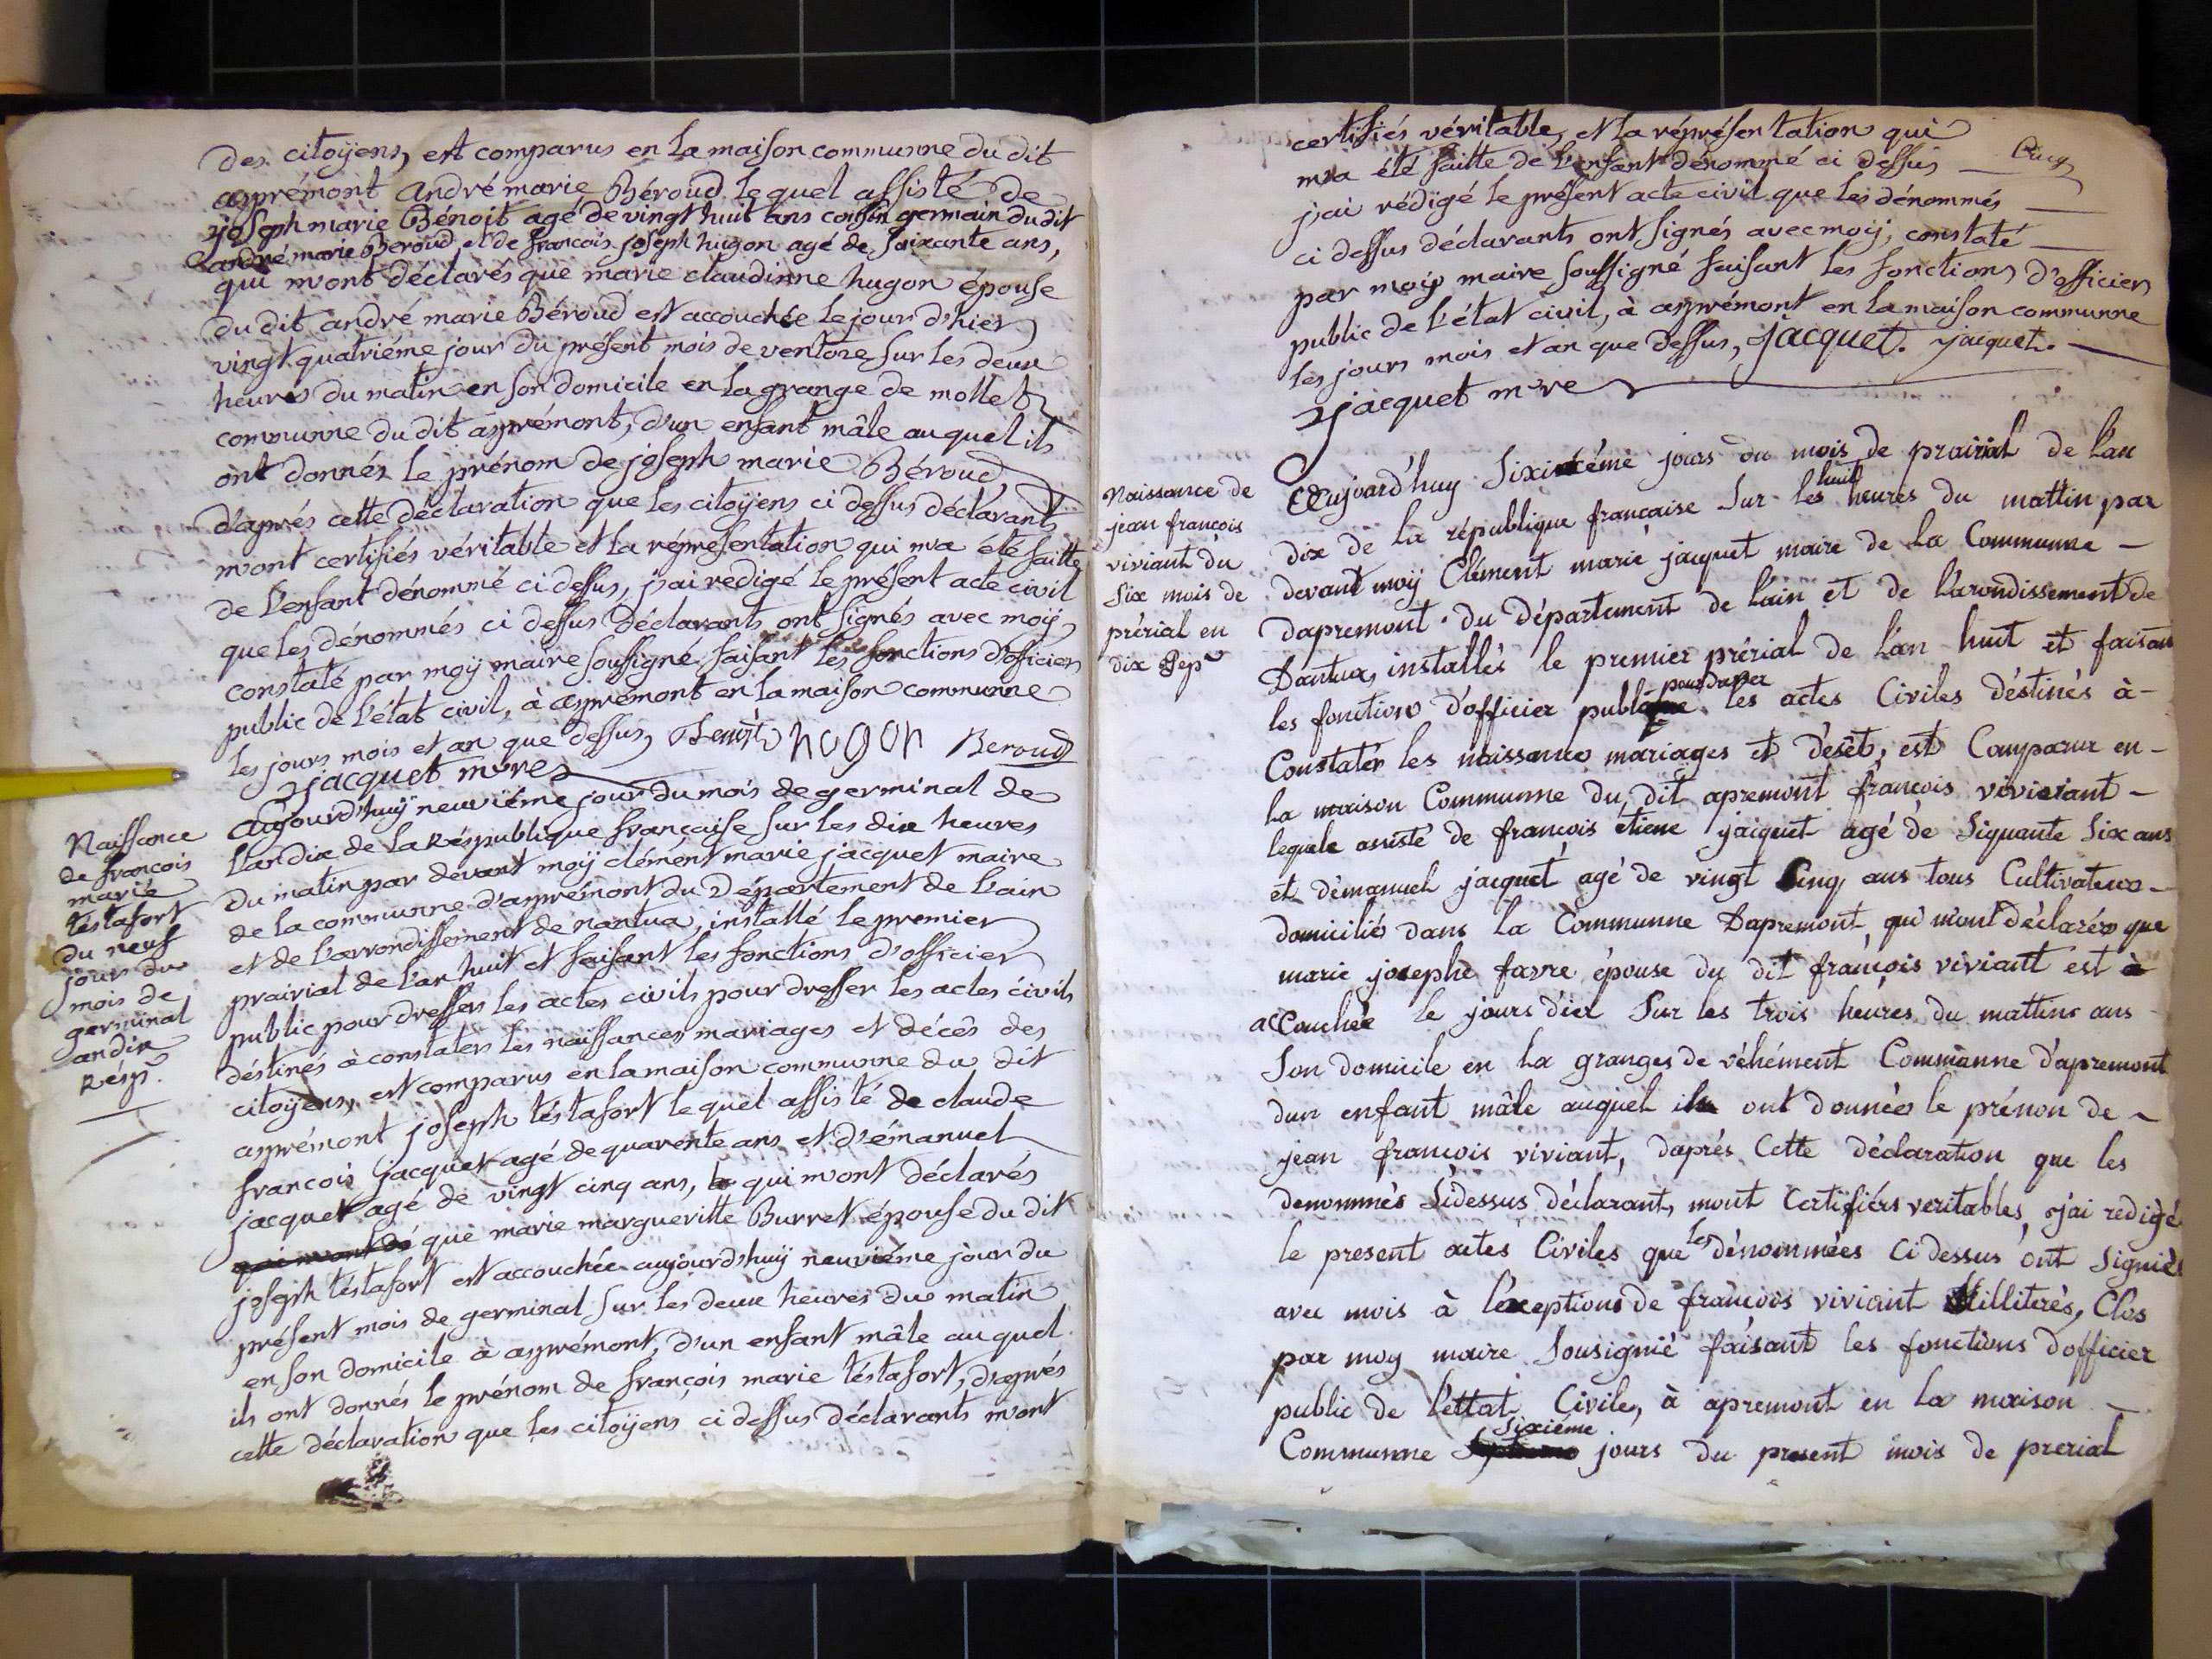 des citoÿens, est comparus en la maison communne du dit
apprémont andré marie Béroud lequel assisté de
joseph marie Bénoit agé de vingt huit ans cousin germain du dit
andré marie Béroud, et de francois joseph hugon agé de soixante ans,
qui m'ont déclarés que marie claudinne hugon épouse
du dit andré marie Béroud est accouchée le jour d'hier
vingt quatriéme jour du présent mois de ventoze sur les deux
heures du matin en son domicile en la grange de mollet
communne du dit apprémont, d'un enfant mâle auquel ils
ont donnés le prénom de joseph marie Béroud,
d'aprés cette déclaration que les citoÿens ci dessus déclarants
m'ont certifiés véritable et la répresentation qui m'a été faitte
de l'enfant dénommé ci dessus, j'ai redigé le présent acte civil
que les dénommés ci dessus déclarants ont signés avec moÿ,
constaté par moÿ maire soussigné faisant les fonctions d'officier
public de l'état civil, à apprémont en la maison communne
les jours mois et an que dessus, Benoit hogon Beroud
jacquet mre
Naissance
de francois
marie
téstafort
du neuf
jours du
mois de
germinal
an dix
Rép.
aujourd'huÿ neuviéme jour du mois de germinal de
l'an dix de la République française sur les dix heures
du matin par devant moÿ clément marie jacquet maire
de la communne d'apprémont du Département de l'ain
et de l'arrondissement de nantua, installé le premier
prairial de l'an huit et faisant les fonctions d'officier
public pour dresser les actes civils pour dresser les actes civils
déstinés à constater les naissances mariages et décès des
citoÿens, est comparus en la maison communne du dit
apprémont joseph téstafort lequel assisté de claude
francois jacquet agé de quarente ans et d'émanuel
jacquet agé de vingt cinq ans, qui m'ont déclarés
qui m'ont dé que marie margueritte Burret épouse du dit
joseph téstafort est accouchée aujourd'huÿ neuviéme jour du
présent mois de germinal sur les deux heures du matin
en son domicile à apprémont, d'un enfant mâle auquel
ils ont donnés le prénom de françois marie téstafort, d'aprés
cette déclaration que les citoÿens ci dessus déclarants m'ont
certifiés véritable, et la réprésentation qui
m'a été faitte de l'enfant dénommé ci dessus
j'ai rédigé le présent acte civil que les dénommés
ci dessus déclarants ont signés avec moÿ, constaté
par moÿ maire soussigné faisant les fonctions d'officier
public de l'état civil, à apprémont en la maison communne
les jours mois et an que dessus, Jacquet. jaiquet.
jacquet mre
Naissance de
jean francois
viviant du
Six mois de
prérial en
dix Rep
Aujourd'huy Sixiéme jours du mois de prairial de l'an
dix de la république francaise Sur les huit heures du mattin par
devant moÿ Clément marie jacquet maire de la Communne
dapremont du Département de l'ain et de l'arondissement de
Nantua, installés le premier prérial de l'an huit et faisant
les fonctions d'officier public pour draser les actes Civiles déstinés à
Constatér les naissance mariages et déset, est Comparur en
la maison Communne du dit apremont francois viviant
lequele assisté de francois étiene jaiquet agé de Siquante Six ans
et démanuel jacquet agé de vingt Sinq ans tous Cultivateurs
domiciliés dans la Communne Dapremont qui m'ont déclarés que
marie josephe favre épouse du dit françois viviant est à
accouchée le jours d'ier Sur les trois heures du mattin ans
Son domicile en la granges de véhément Communne d'apremont
dun enfant mâle auquel ils ont données le prénon de
jean francois viviant, daprés Cette déclaration que les
denommés Sidessus déclarant, mont Certifiérs veritables, j'ai redigé
le present actes Civiles que les dénommées Ci dessus ont Signiés
avec mois à l'éxeptions de francois viviant illiterés, Clos
par moy maire Sousignié faisant les fonctions d'officier
public de l'ettat Civile, à apremont en la maison
Communne Sixiéme jours du present mois de prerial